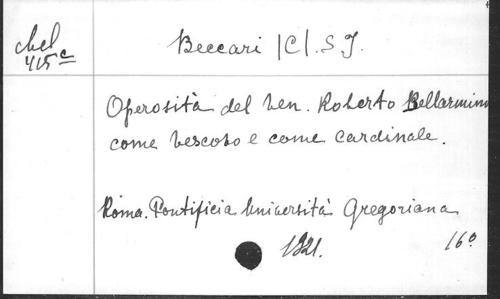 chel
415 c
Beccari |C|. S J.
Operosità del ven. Roberto Bellarmino
come vescovo e come cardinale.
Roma. Pontificia Università Gregoriana
1921.
16º